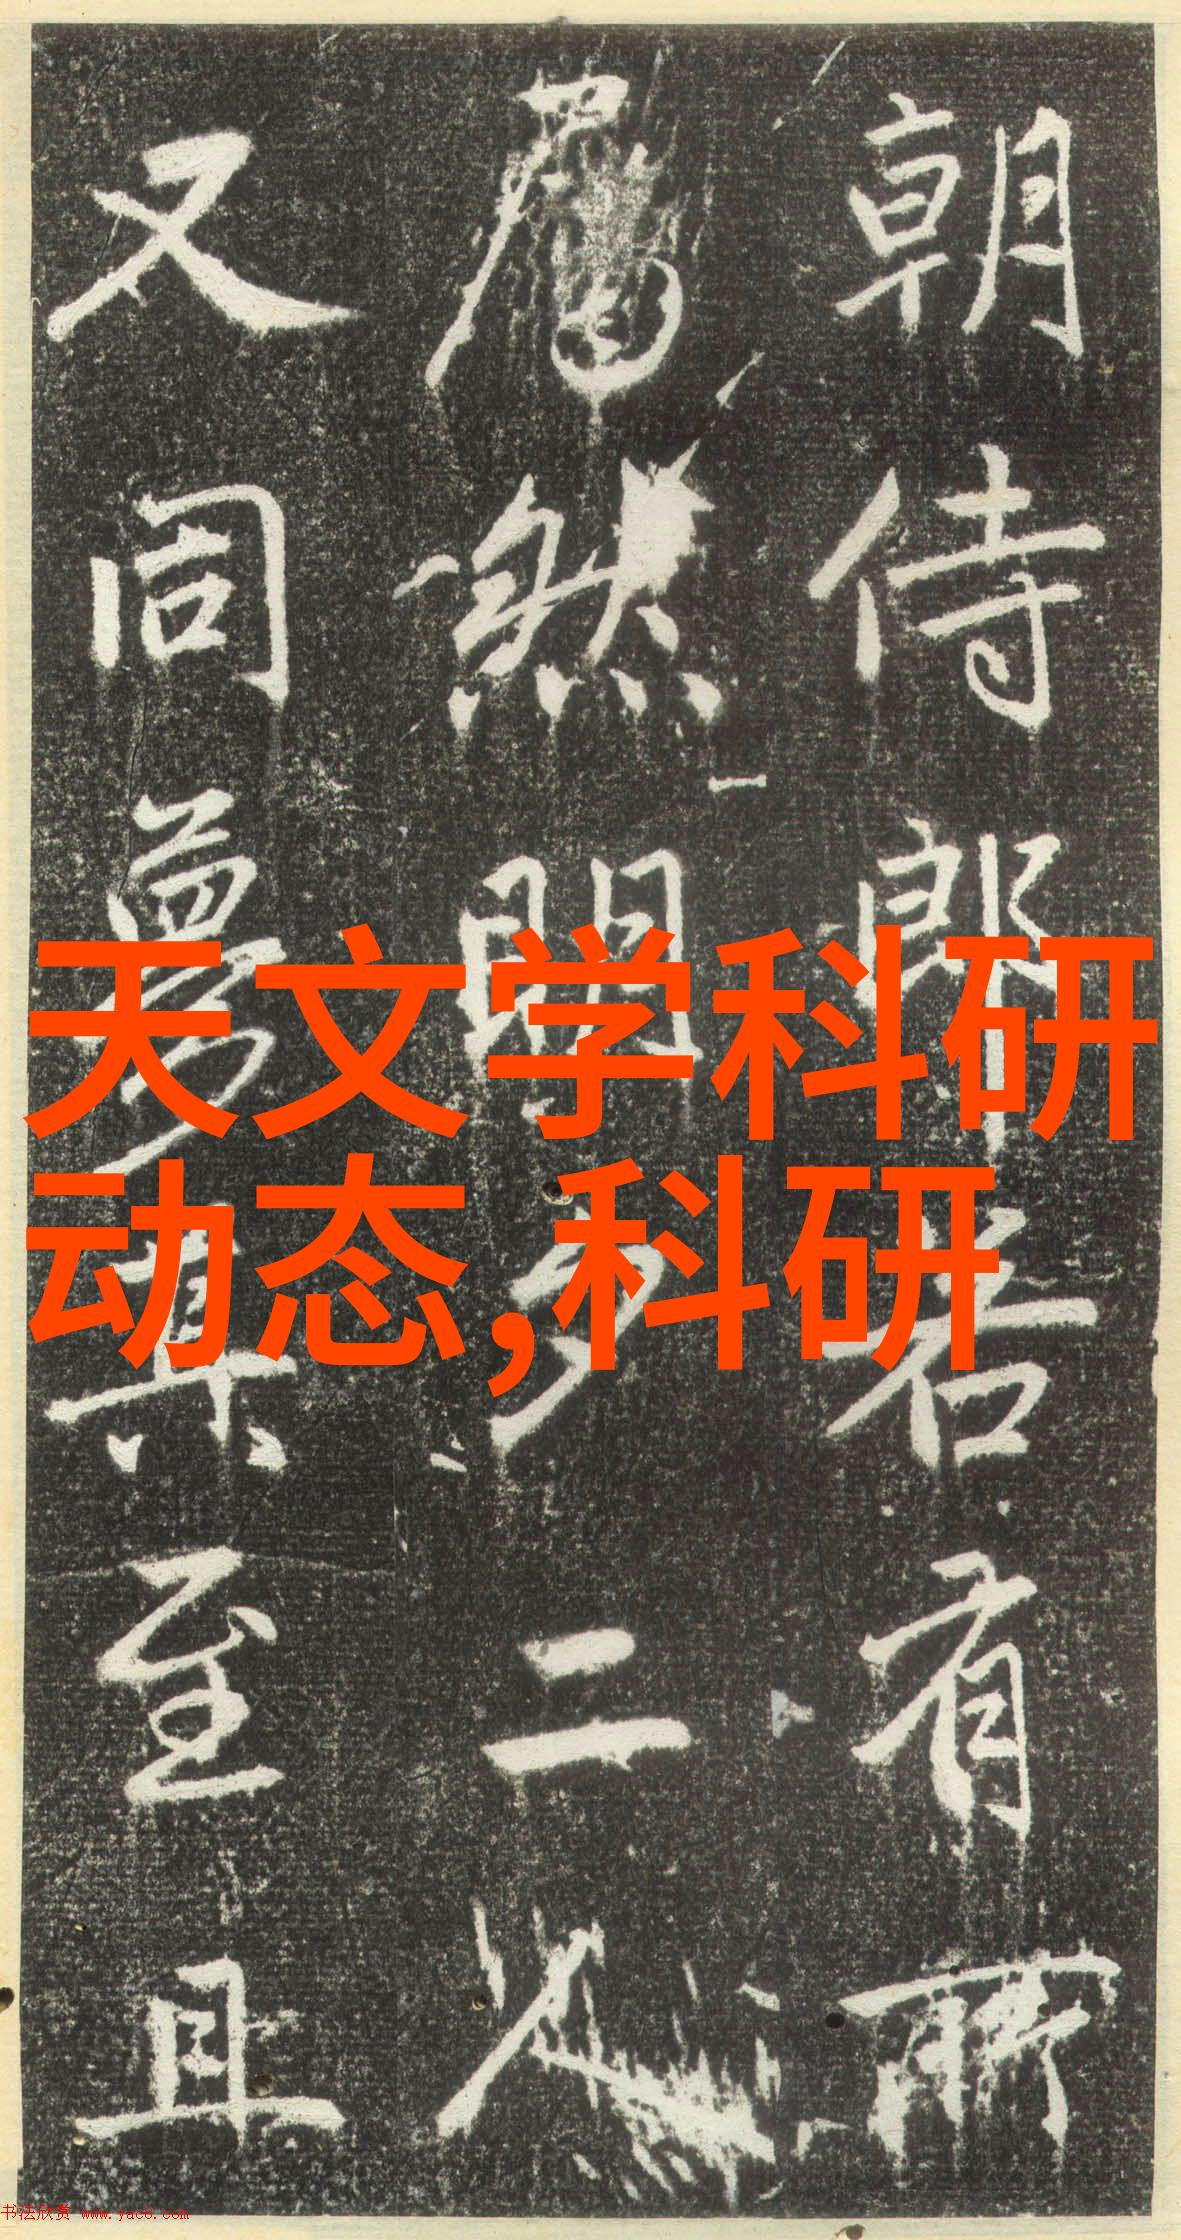 朝侍郎若有所
屬然明夕二人
又同夢其至且
天文学科研
动态,科研
书法欣赏 www.yac8.com